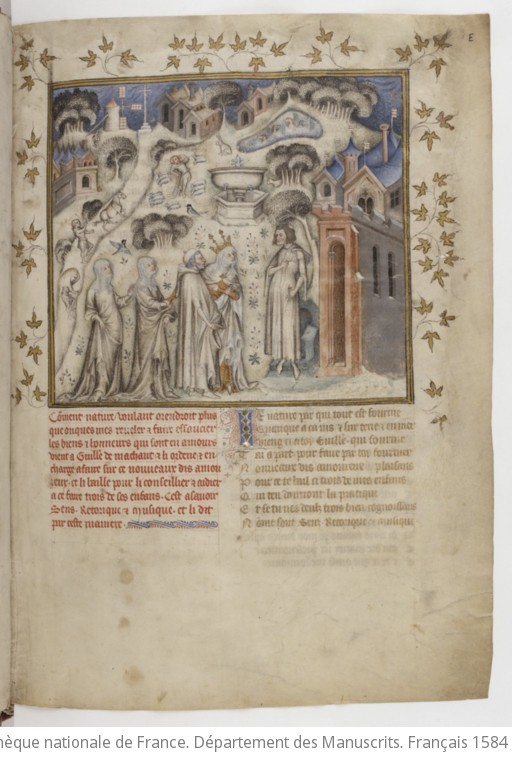 E
Coment nature voulant orendroit plus
que onques mes reveler & faire essaucier
les biens & honneurs qui sont en amours
vient a Guille de machaut & li ordene & en
charge a faire sur ce nouveaux dis amou
reux. et li baille pour li conseillier & aidier
a ce faire trois de ses enfans. Cest asavoir
Sens. Retorique & musique. et li dit
par ceste maniere.
Je nature par qui tout est fourme
et sur terre &
Guille. qui fourme
ta a part pour faire par toy fourmer
Nouveaus dis amoureus plaisans
Pour ce te bail ci trois de mes enfans
Qui ten donront la pratique
Et se tu nes deulz trois bien
Nome sont Sens Retorique & musique
hèque nationale de France. Département des Manuscrits. Français 1584